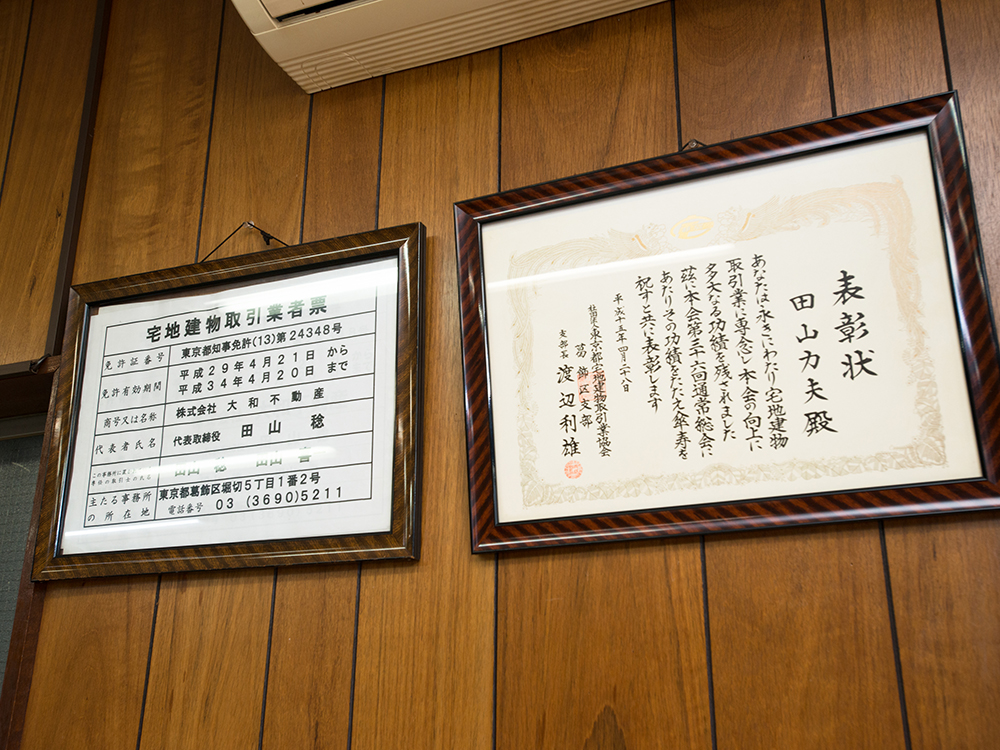 宅地建物取引業者票
免許証番号 東京都知事免許(13)第24348号
免許有効期間 平成29年4月21日 から
平成34年4月20日 まで
商号又は名称 株式会社 大和不動産
代表者氏名 代表取締役 田山 稔
主たる事務所 東京都葛飾区堀切5丁目1番2号
の所在地 電話番号 03 (3690)5211
表彰状
田山力夫殿
あなたは永きにわたり宅地建物
取引業に専念し本会の向上に
多大なる功績を残されました
茲に本会第三十六回通常総会に
あたりその功績をたたえ傘寿を
祝すと共に表彰します
平成十五年四月二十八日
社団法人東京都宅地建物取引業協会
葛飾区支部
支部長 渡辺利雄